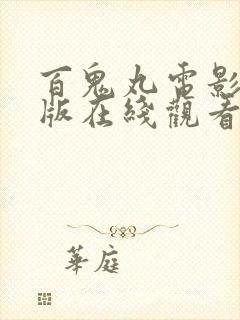 百鬼丸電影
版在綫觀看
華庭